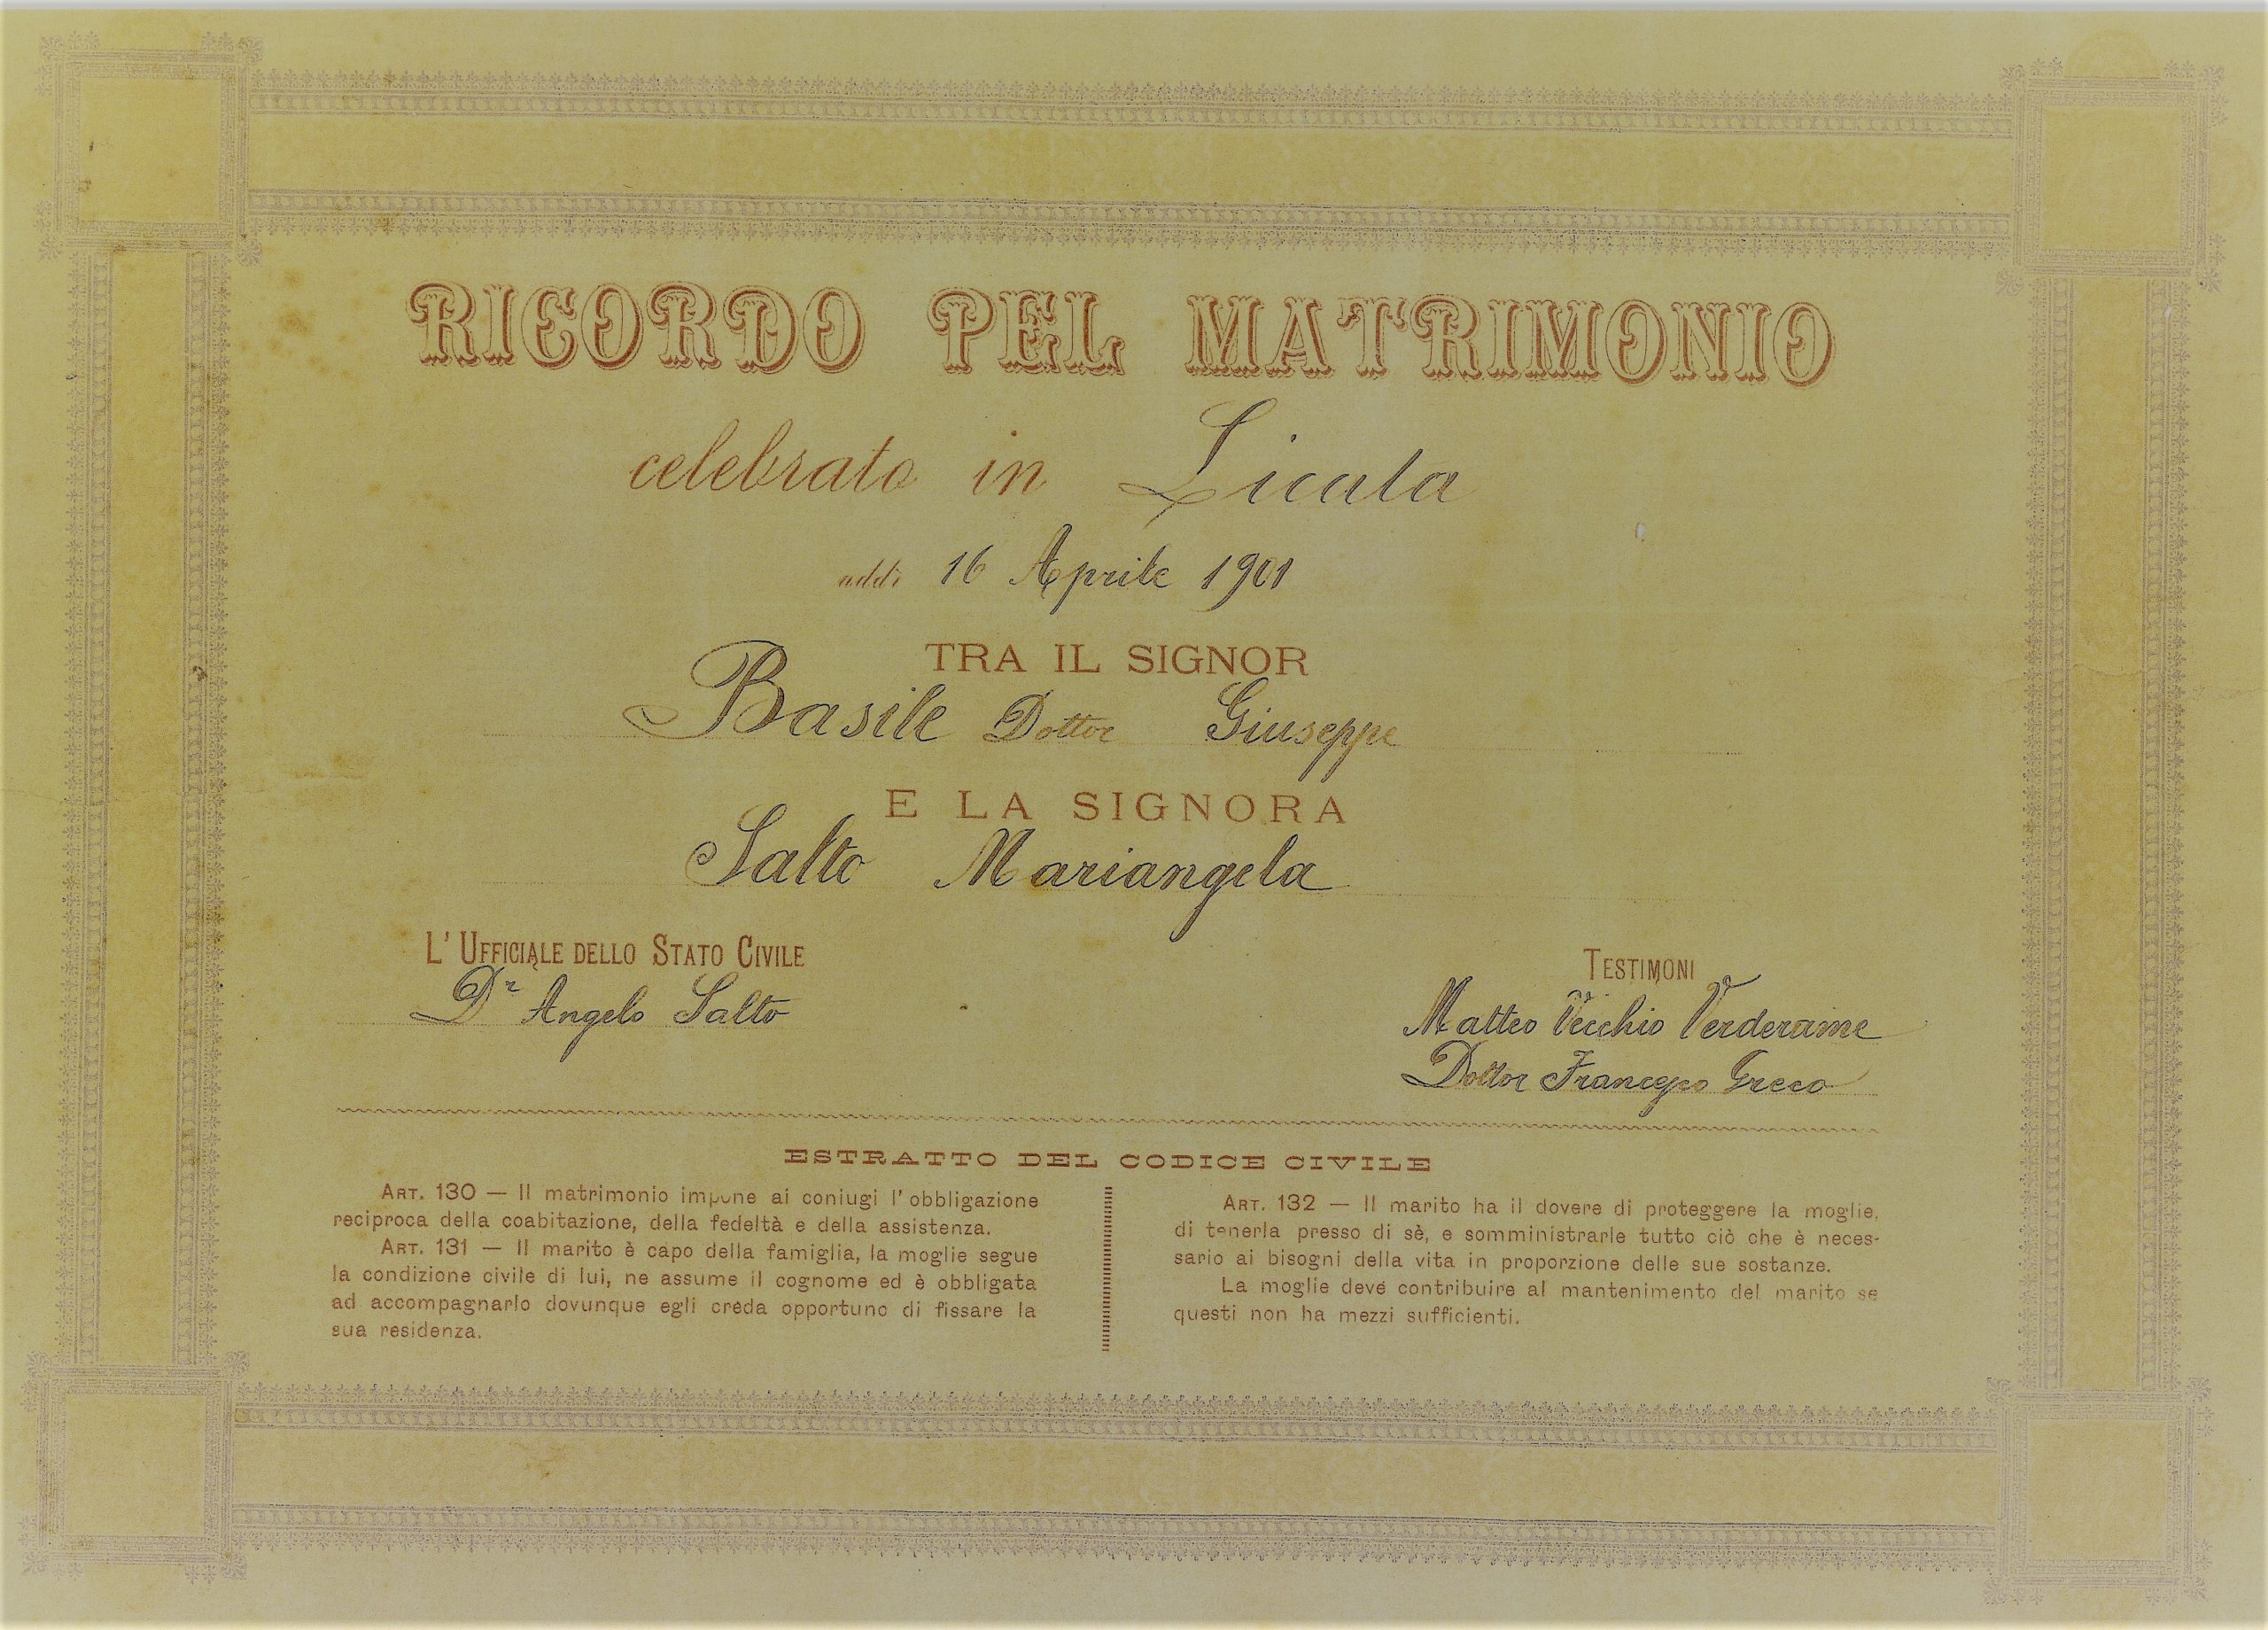 RICORDO PEL MATRIMONIO
celebrato in Licata
addì 16 Aprile 1901
TRA IL SIGNOR
Basile Dottor Giuseppe
E LA SIGNORA
Salto Mariangela
L' UFFICIALE DELLO STATO CIVILE
Dr Angelo Salto
TESTIMONI
Matteo Vecchio Verderame
Dottor Francesco Greco
ESTRATTO DEL CODICE CIVILE
ART. 130 — Il matrimonio impone ai coniugi l' obbligazione
reciproca della coabitazione, della fedeltà e della assistenza.
ART. 131 — Il marito è capo della famiglia, la moglie segue
la condizione civile di lui, ne assume il cognome ed è obbligata
ad accompagnarlo dovunque egli creda opportuno di fissare la
sua residenza.
ART. 132 — Il marito ha il dovere di proteggere la moglie,
di tenerla presso di sè, e somministrarle tutto ciò che è neces-
sario ai bisogni della vita in proporzione delle sue sostanze.
La moglie deve contribuire al mantenimento del marito se
questi non ha mezzi sufficienti.